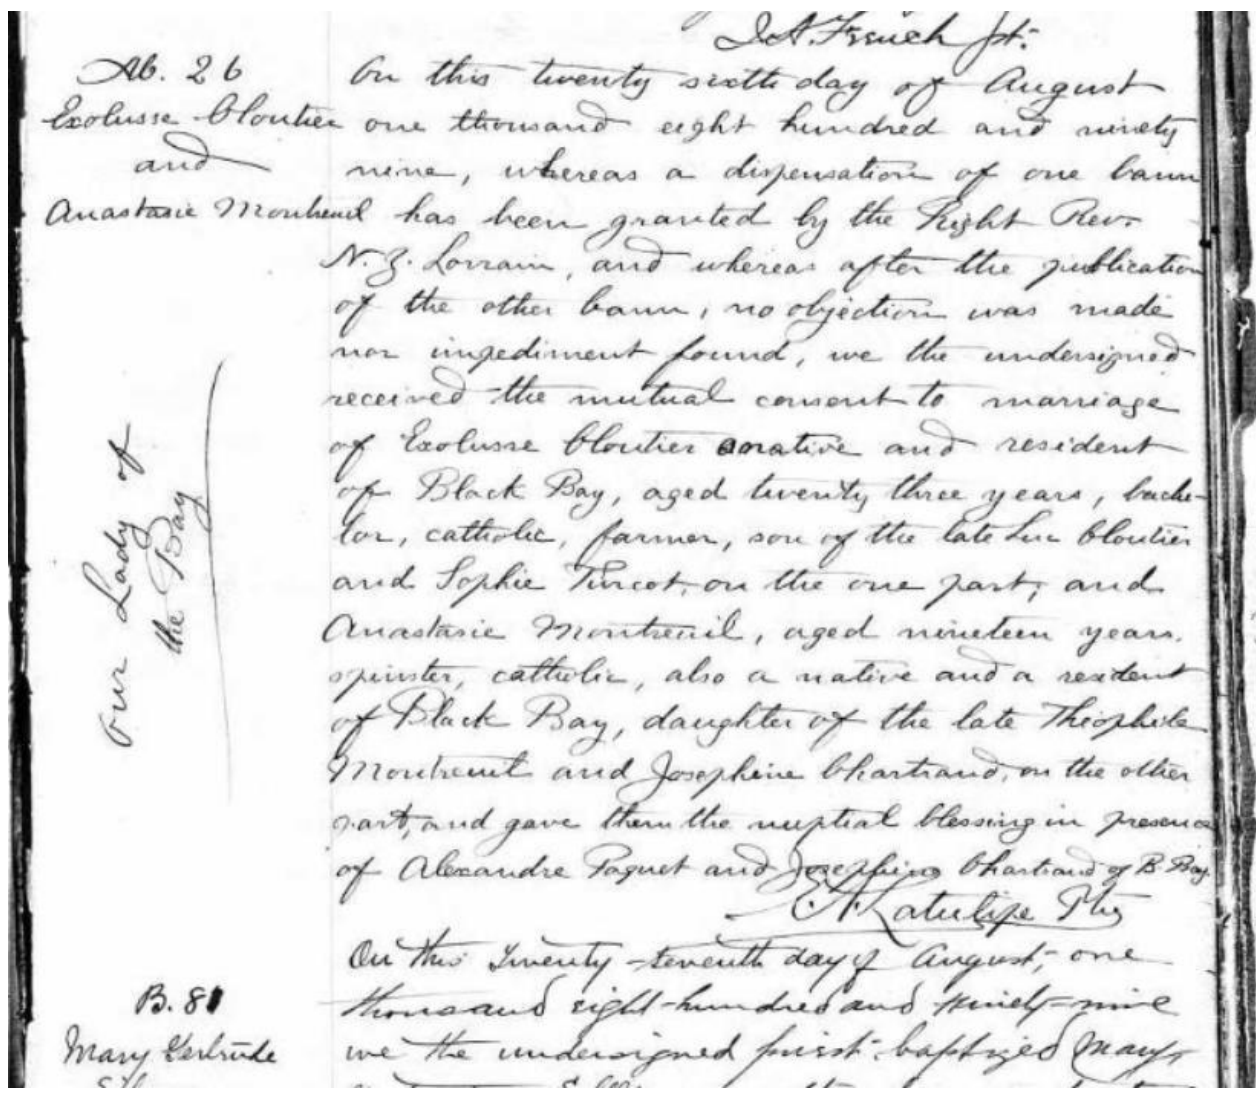 J.A. French pt.
Ab. 26
Exolusse Cloutier
and
Anastasie Montreuil
Our Lady of
the Bay
On this twenty sixth day of August
one thousand eight hundred and ninety
nine, whereas a dispensation of one bann
has been granted by the Right Rev.
N. Z. Lorrain, and whereas after the publication
of the other bann, no objection was made
nor impediment found, we the undersigned
received the mutual consent to marriage
of Exolusse Cloutier a native and resident
of Black Bay, aged twenty three years, bache-
lor, catholic, farmer, son of the late Luc Cloutier
and Sophie Turcot, on the one part, and
Anastasie Montreuil, aged nineteen years.
spinster, catholic, also a native and a resident
of Black Bay, daughter of the late Theophile
Montreuil and Josephine Chartrand, on the other
part, and gave them the nuptial blessing in presence
of Alexandre Paquet and Josephine Chartrand of B. Bay.
E. A. Latulipe Ptr
B. 81
Mary Gertrude
On this Twenty-seventh day of August, one
thousand eight-hundred and ninety-nine
we the undersigned priest baptized Mary